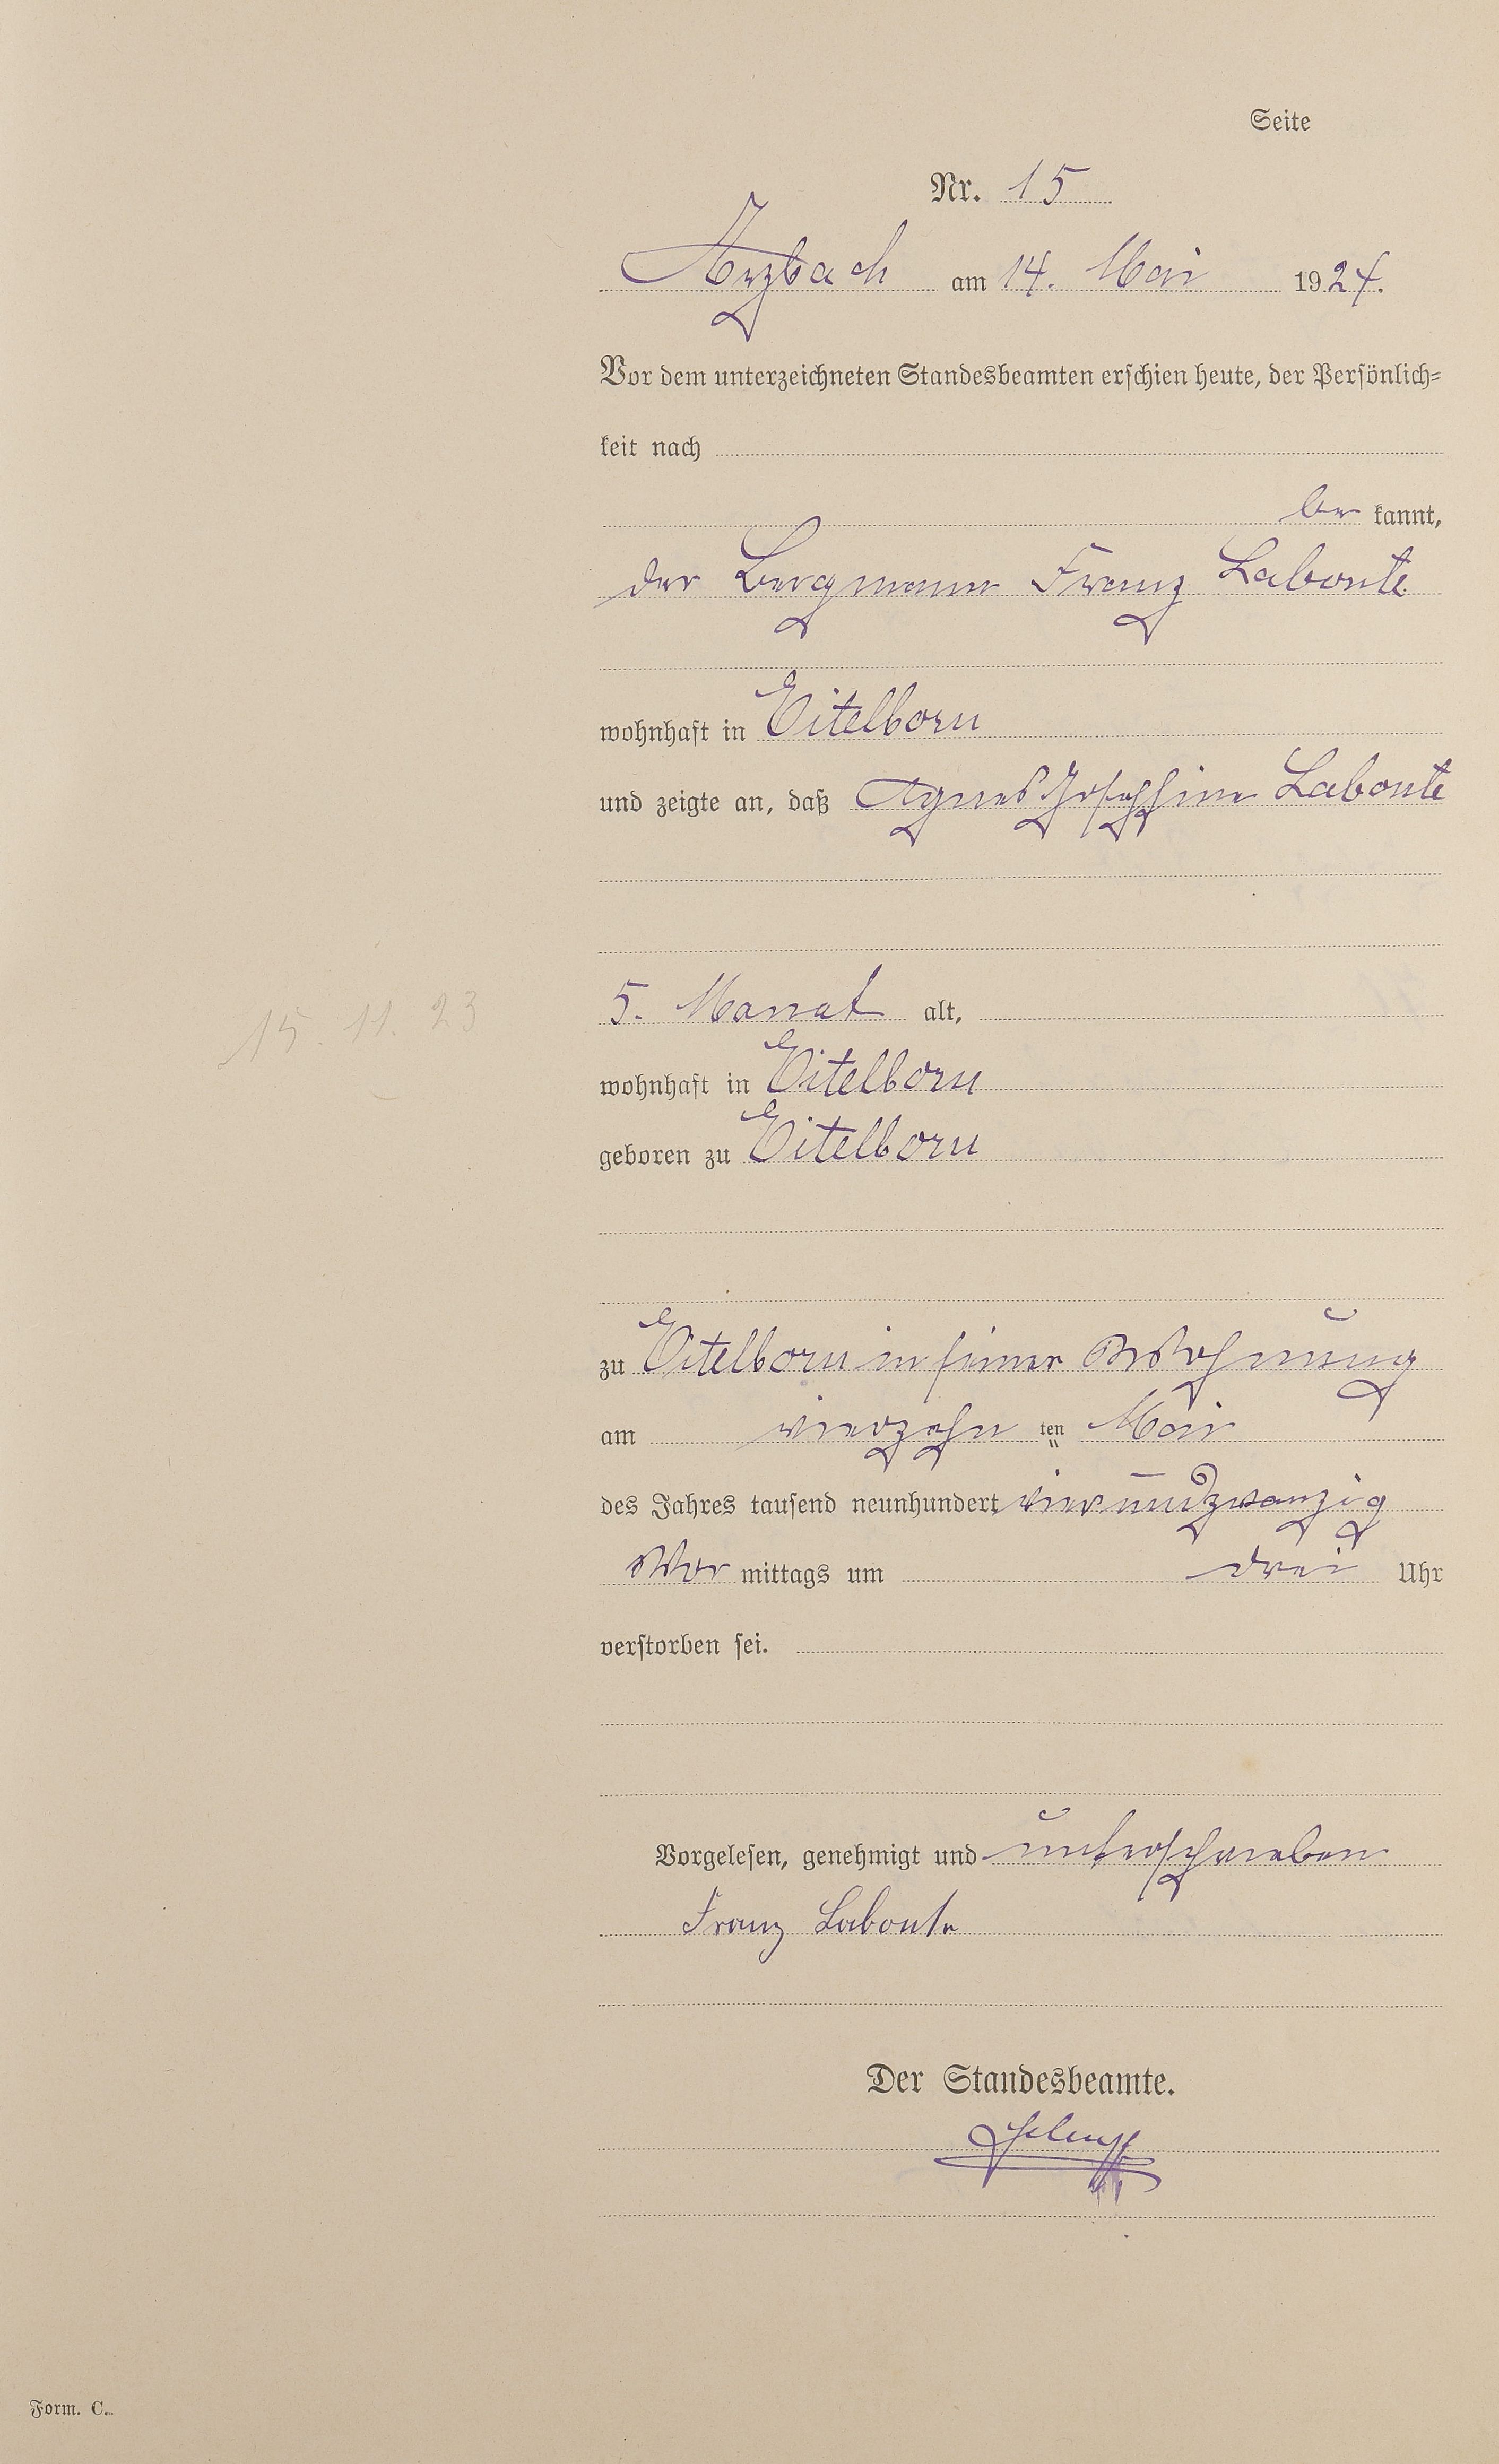 Seite
Nr. 15
Arzbach am 14. Mai 1924.
Vor dem unterzeichneten Standesbeamten erschien heute, der Persönlich-
keit nach
be kannt,
der Bergmann Franz Labonte
wohnhaft in Eitelborn
und zeigte an, daß Agnes Josephine Labonte
5. Monat alt,
15. 11. 23
wohnhaft in Eitelborn
geboren zu Eitelborn
zu Eitelborn in seiner Wohnung
am vierzehn ten Mai
des Jahres tausend neunhundert vierundzwanzig
Vor mittags um drei Uhr
verstorben sei.
Vorgelesen, genehmigt und unterschrieben
Franz Labonte
Der Standesbeamte.
Form. C.